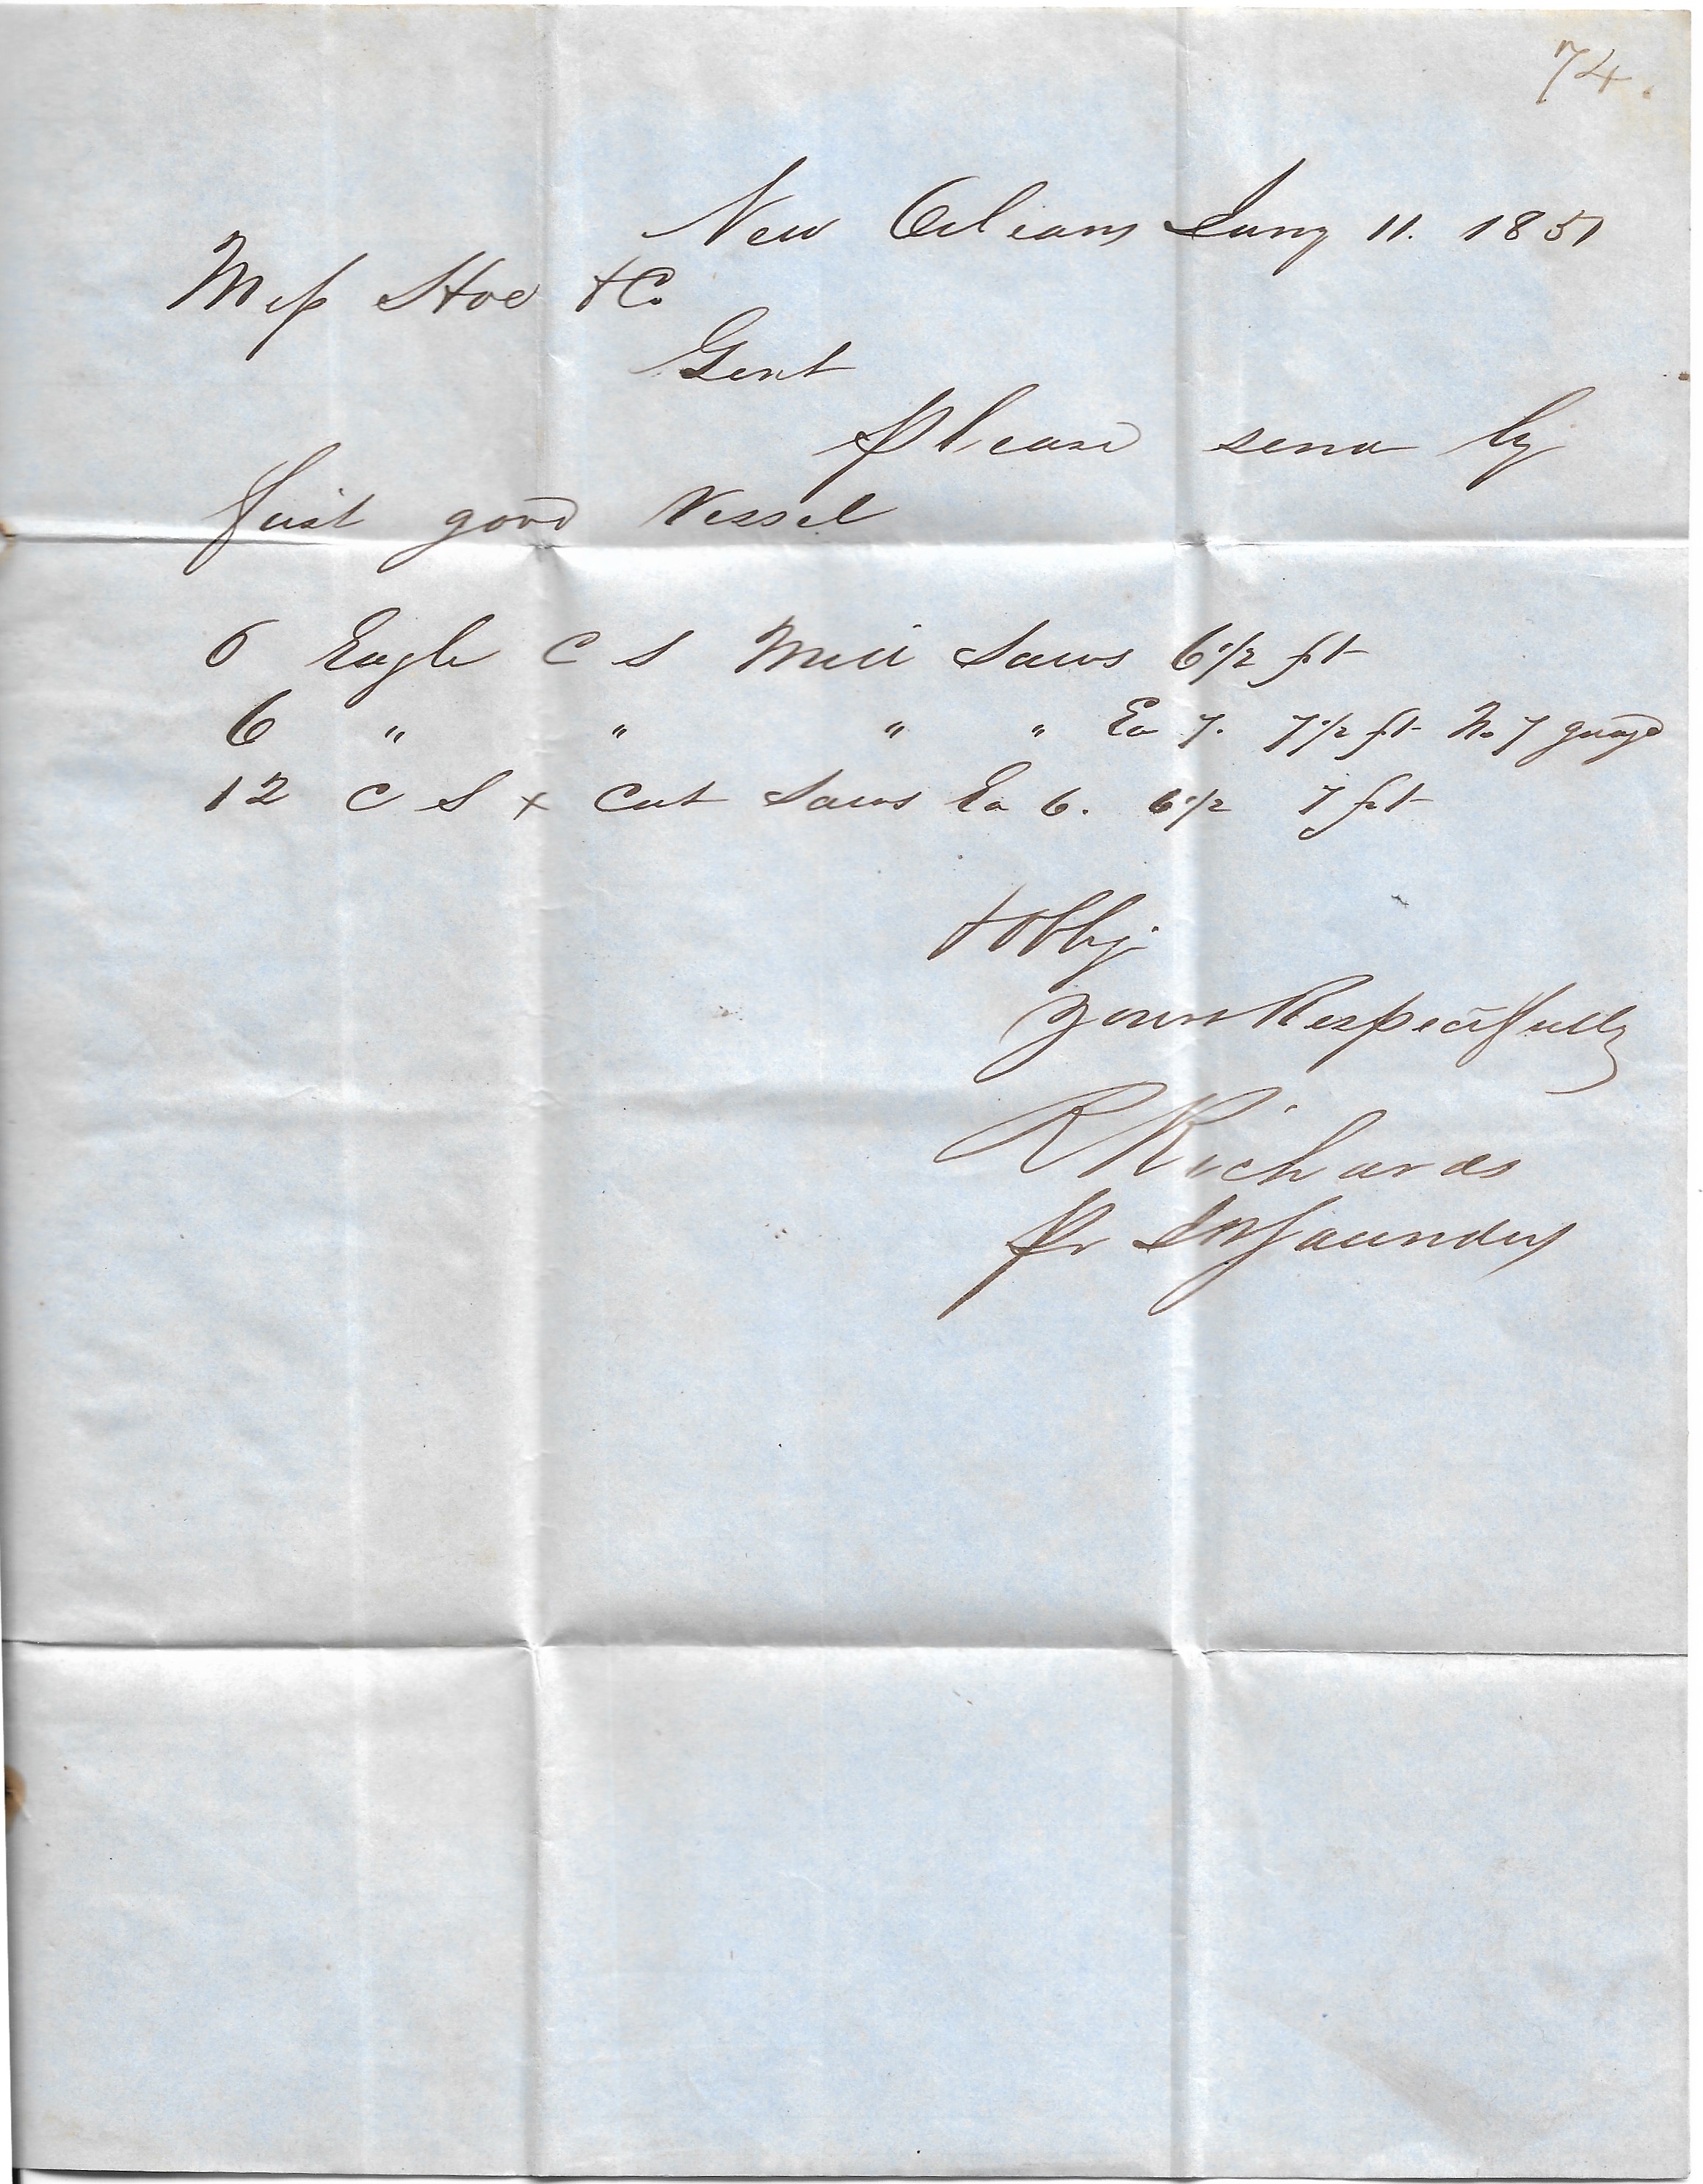 74.
New Orleans Jany 11. 1851
Mess Hoe & Co.
Gent
Please send by
first good Vessel
6 Eagle C S Mill Saws 6 1/2 ft
6 " " " " Ea 7. 7 1/2 ft No 7 guage
12 C S X Cut Saws Ea 6. 6 1/2 7 ft
& Oblig
Yours Respectfully
R Richards
Pr Saunders